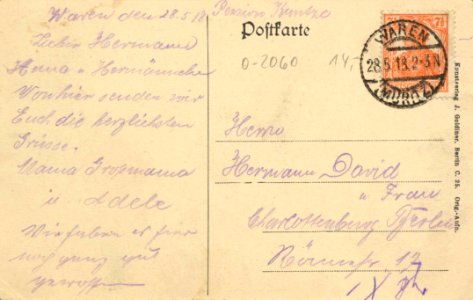 Waren den 28.5.18 Pension
Lieber Hermann
Anna u Hermännchen
Von hier senden wir
Euch die herzlichsten
Grüsse.
Mama Grossmama
u. Adele
Wir haben es hier
noch ganz gut
Postkarte
0-2060 14,-
WAREN
28.5.18.2-3N
(MÜRITZ)
7½
Herrn
Hermann David
u Frau
Charlottenburg Berlin
12
Kunstverlag J. Goldiner, Berlin C. 25. Orig.-Aufn.